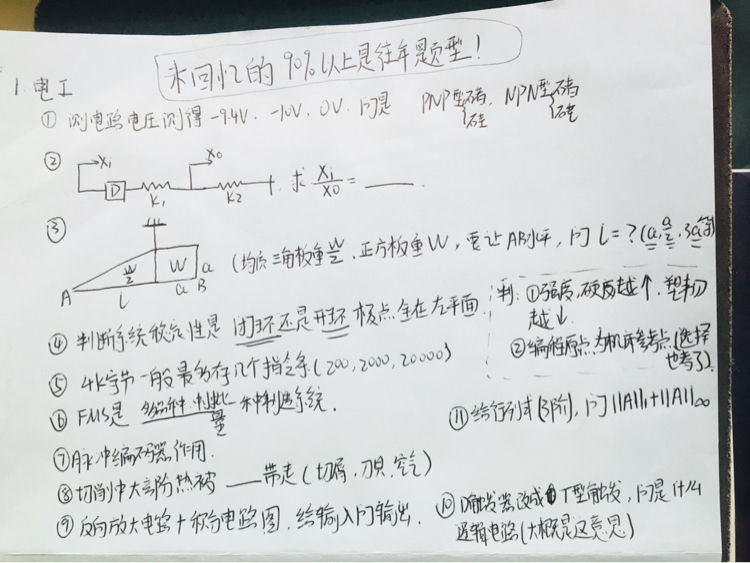 未回忆的90%以上是往年题型！
1. 电工
① 测电路电压测得-9.4V、-10V、0V、问是 PNP型{硅 锗, NPN型{硅 锗
② Xi D K1 X0 K2 , 求 Xi/X0 = ____.
③ A l W/2 W a a B (均质三角板重W/2, 正方板重W, 要让AB水平, 问 l=? (a, a/2, 3a等)
④ 判断系统稳定性是 闭环还是开环 极点全在左平面.
判: ①强度,硬度越↑. 塑韧越↓.
②编程原点为机床参考点(选择也考了).
⑤ 4K字节一般最多存几个指令字(200, 2000, 20000)
⑥ FMS是 多品种、中小批量 种制造系统.
⑦ 脉冲编码器作用.
⑧ 切削中大部分热被 ____带走(切屑, 刀具, 空气)
⑨ 反向放大电路+积分电路图, 给输入问输出.
⑩ D触发器改成 T型触发, 问是什么逻辑电路(大概是这意思)
⑪ 给行列式(3阶), 问||A||₁+||A||∞